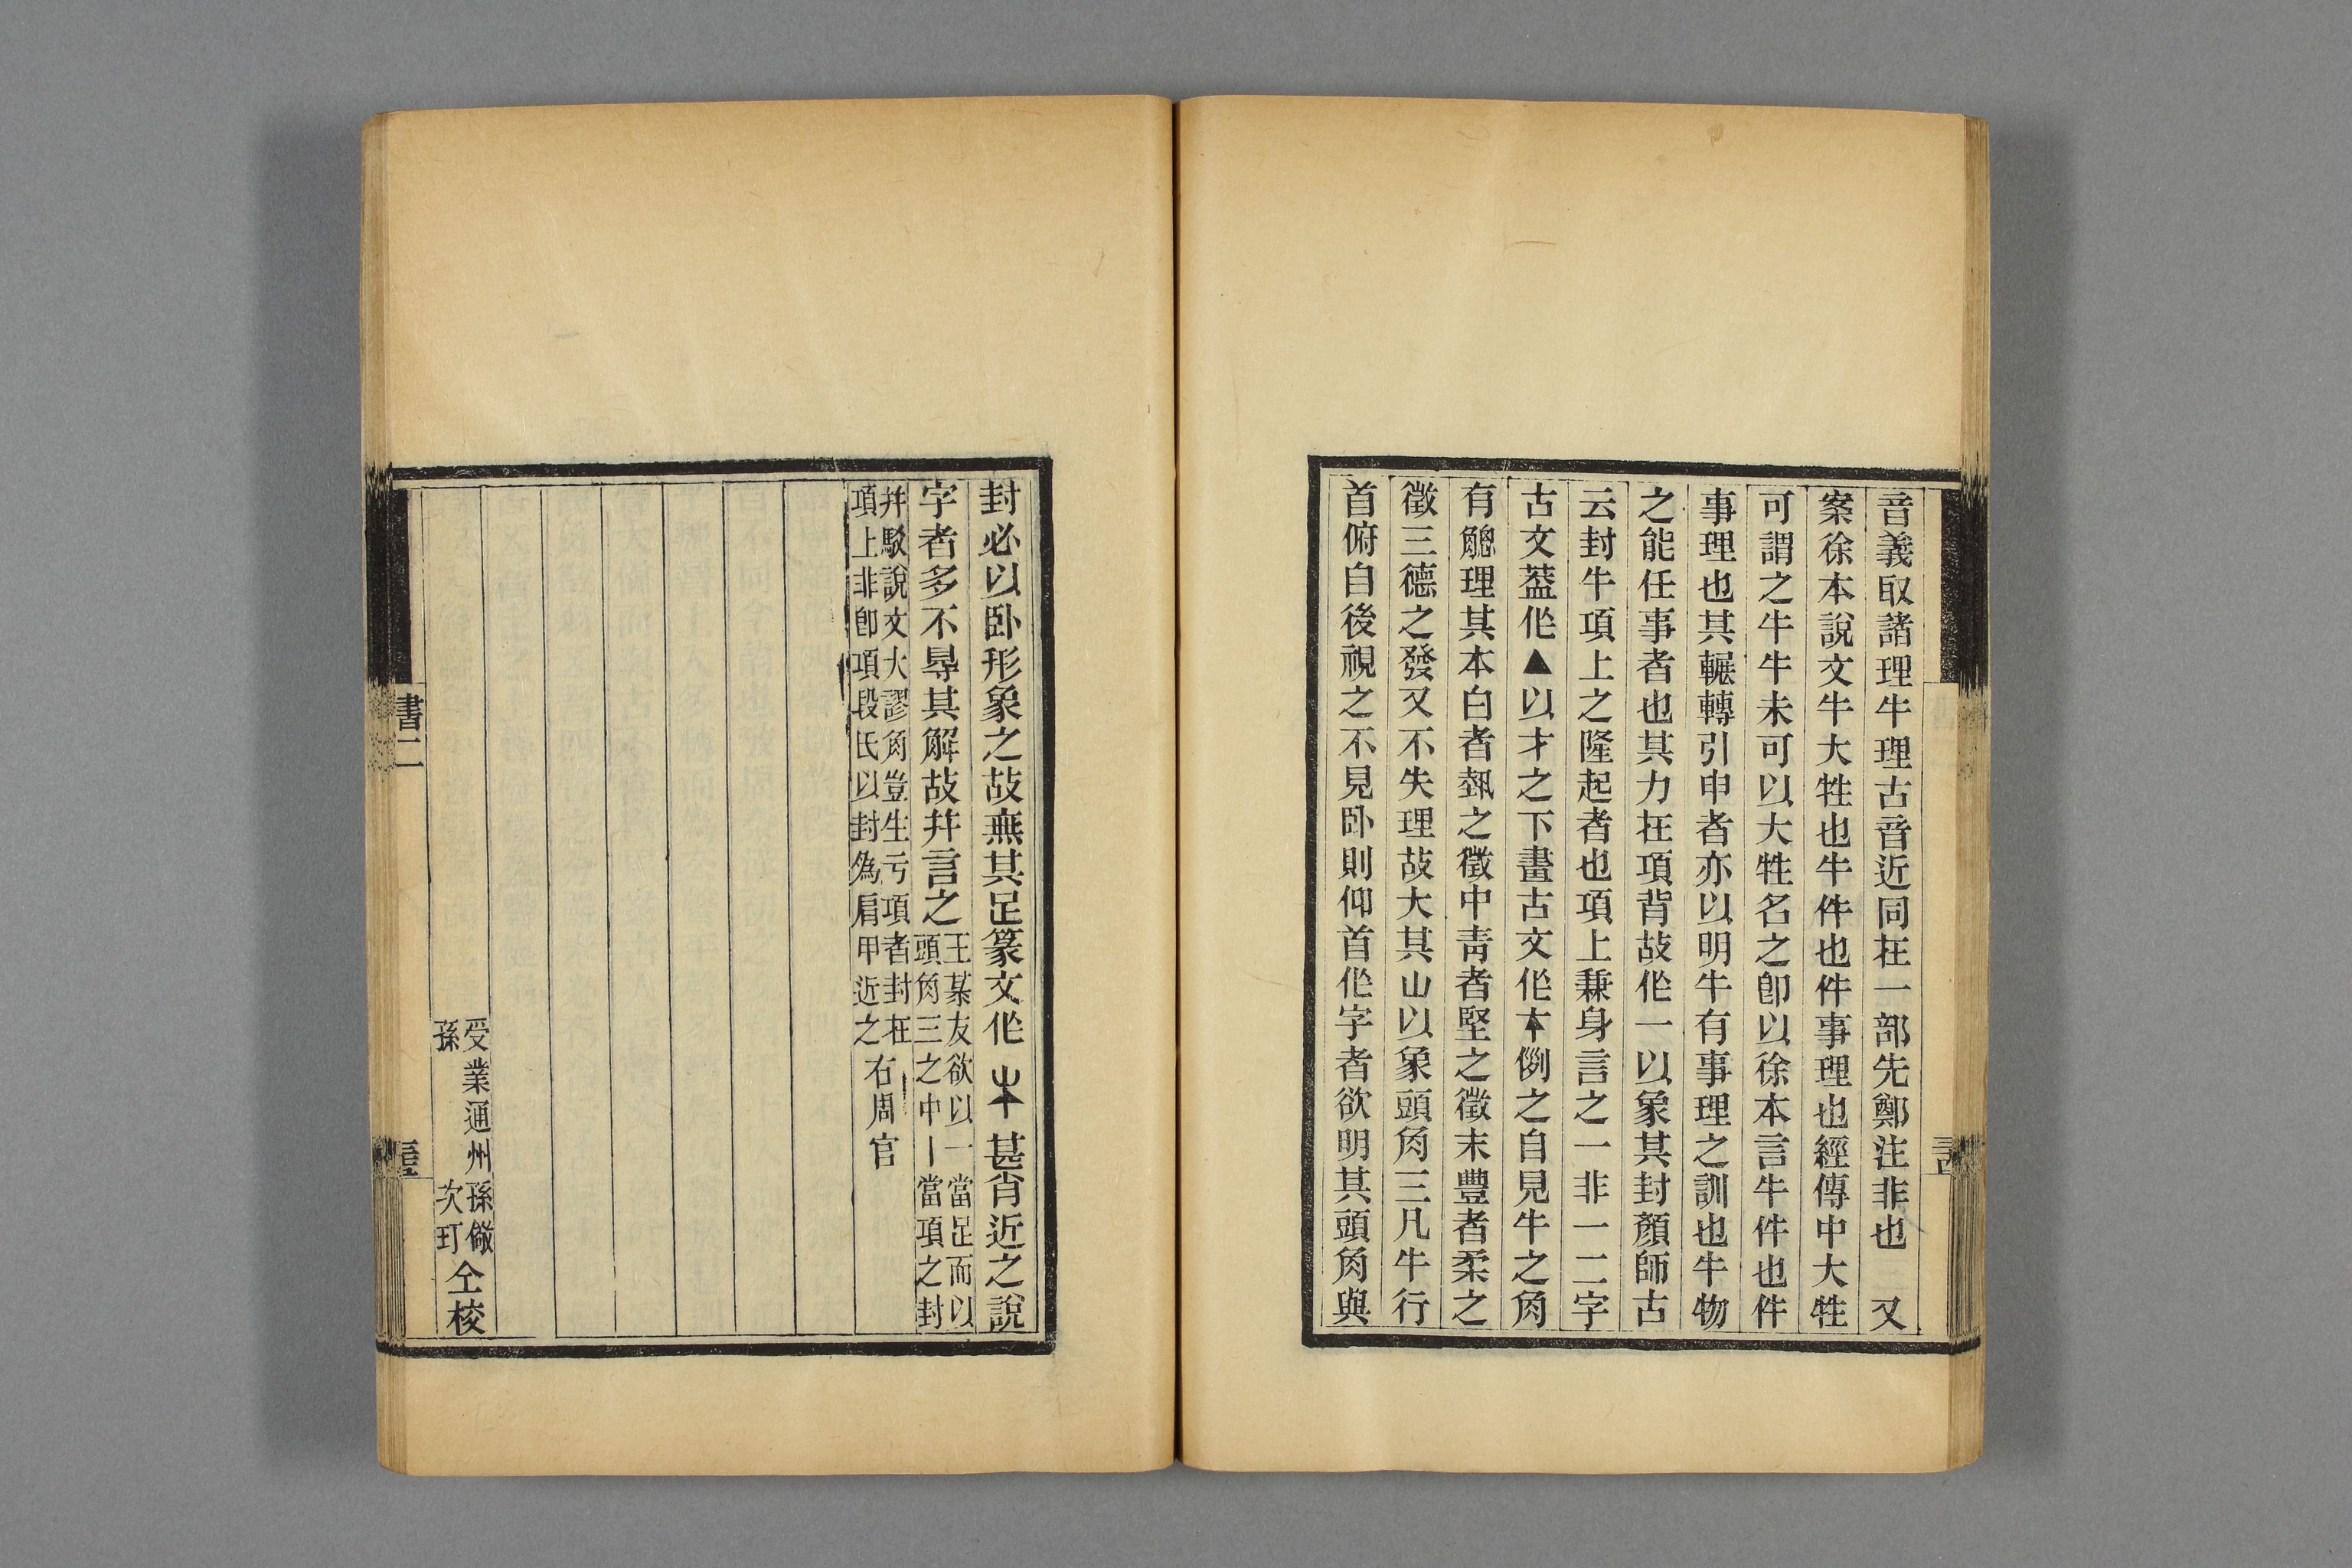 音義取諸理牛理古音近同在一部先鄭注非也　又
案徐本說文牛大牲也牛件也件事理也經傳中大牲
可謂之牛牛未可以大牲名之卽以徐本言牛件也件
事理也其輾轉引申者亦以明牛有事理之訓也牛物
之能任事者也其力在項背故作一以象其封顏師古
云封牛項上之隆起者也項上兼身言之一非一二字
古文葢作▲以才之下畫古文作𠂇例之自見牛之角
有䚡理其本白者埶之徵中靑者堅之徵末豐者柔之
徵三德之發又不失理故大其山以象頭角三凡牛行
首俯自後視之不見卧則仰首作字者欲明其頭角與
封必以卧形象之故無其足篆文作甚肖近之說
字者多不㝵其解故幷言之王某友欲以一當足而以
頭角三之中丨當項之封
幷駁說文大謬角豈生亏項者封在
項上非卽項段氏以封爲肩甲近之右周官
受業通州孫儆
孫次玎仝校
書二